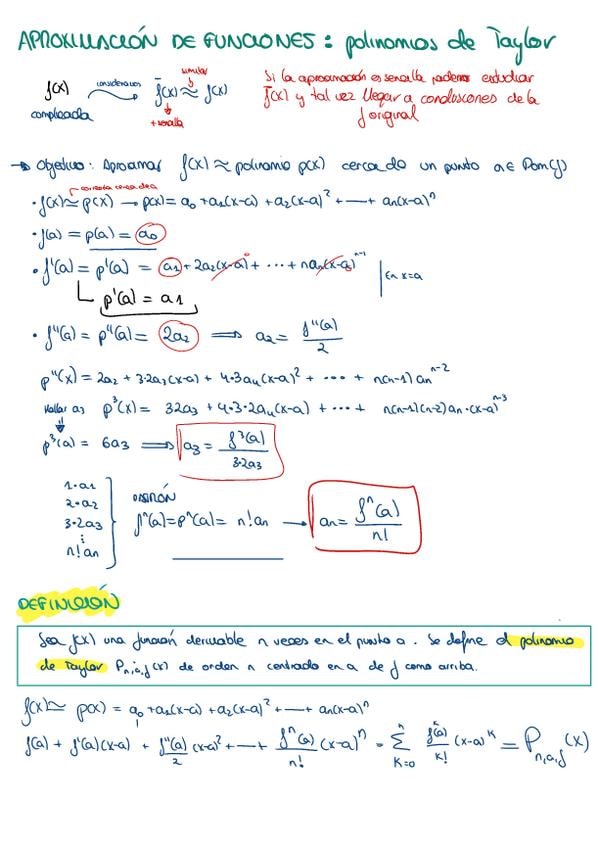 APROXIMACIÓN DE FUNCIONES: polinomios de Taylor
f(x) consideramos f̄(x) ≈ f(x) similar
complicada + sencilla
Si la aproximación es sencilla podemos estudiar
f̄(x) y tal vez llegar a conclusiones de la
f original
→ Objetivo: Aproximar f(x) ≈ polinomio p(x) cerca de un punto a ∈ Dom(f)
correcta cerca de a
· f(x) ≃ p(x) → p(x) = a₀ + a₁(x-a) + a₂(x-a)² + ··· + an(x-a)ⁿ
· f(a) = p(a) = a₀
· f'(a) = p'(a) = a₁ + 2a₂(x-a) + ··· + n an(x-a)ⁿ⁻¹ | En x=a
p'(a) = a₁
· f''(a) = p''(a) = 2a₂ ⟹ a₂ = f''(a)/2
p''(x) = 2a₂ + 3·2a₃(x-a) + 4·3a₄(x-a)² + ··· + n(n-1) anⁿ⁻²
Hallar a₃ p³(x) = 3·2a₃ + 4·3·2a₄(x-a) + ··· + n(n-1)(n-2)an·(x-a)ⁿ⁻³
p³(a) = 6a₃ ⟹ a₃ = f³(a)/3·2a₃
1·a₁
2·a₂
3·2a₃
⋮
n! an
PATRÓN
fⁿ(a) = pⁿ(a) = n! an → an = fⁿ(a)/n!
DEFINICIÓN
Sea f(x) una función derivable n veces en el punto a. Se define el polinomio
de Taylor Pn,a,f(x) de orden n centrado en a de f como arriba.
f(x) ≃ p(x) = a₀ + a₁(x-a) + a₂(x-a)² + ··· + an(x-a)ⁿ
f(a) + f'(a)(x-a) + f''(a)/2 (x-a)² + ··· + fⁿ(a)/n! (x-a)ⁿ = Σ K=0 n fᵏ(a)/k! (x-a)ᵏ = Pn,a,f(x)